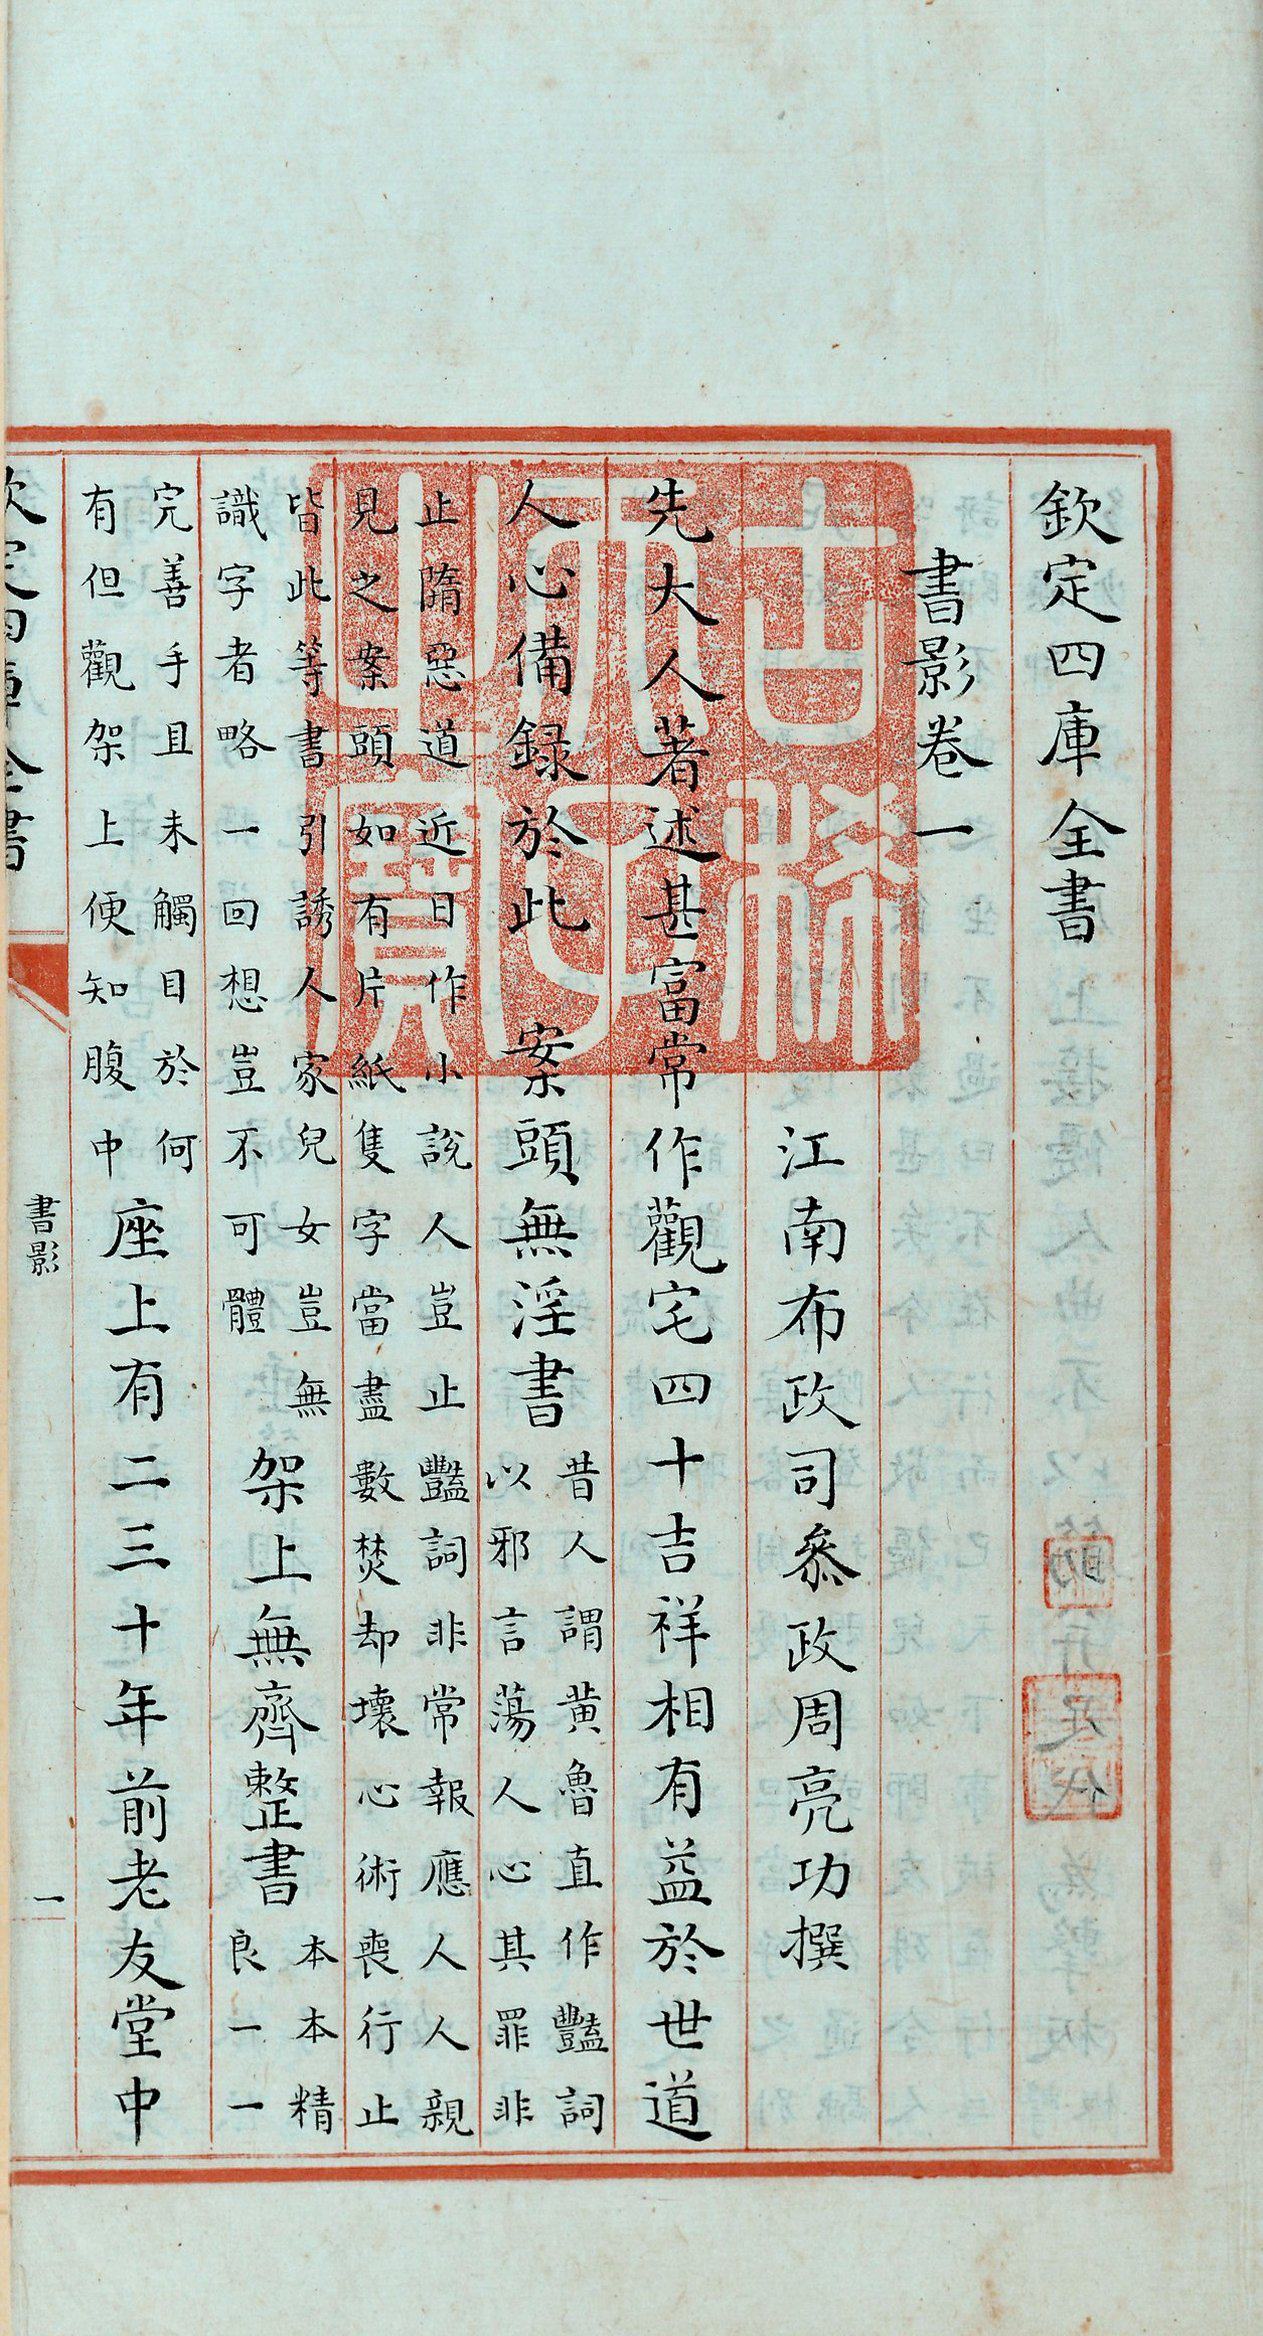 欽定四庫全書
書影卷一
江南布政司叅政周亮功撰
先大人著述甚富常作觀宅四十吉祥相有益於世道
人心備録於此　案頭無淫書
昔人謂黄魯直作豔詞
以邪言蕩人心其罪非
止隋惡道近日作小說人豈止豔詞非常報應人人親
見之案頭如有片紙隻字當盡數焚却壞心術喪行止
皆此等書引誘人家兒女豈無
識字者略一回想豈不可體
架上無齊整書
本本精
良一一
完善手且未觸目於何
有但觀架上便知腹中
座上有二三十年前老友堂中
欽定四庫全書
書影
一
古稀天子之寶